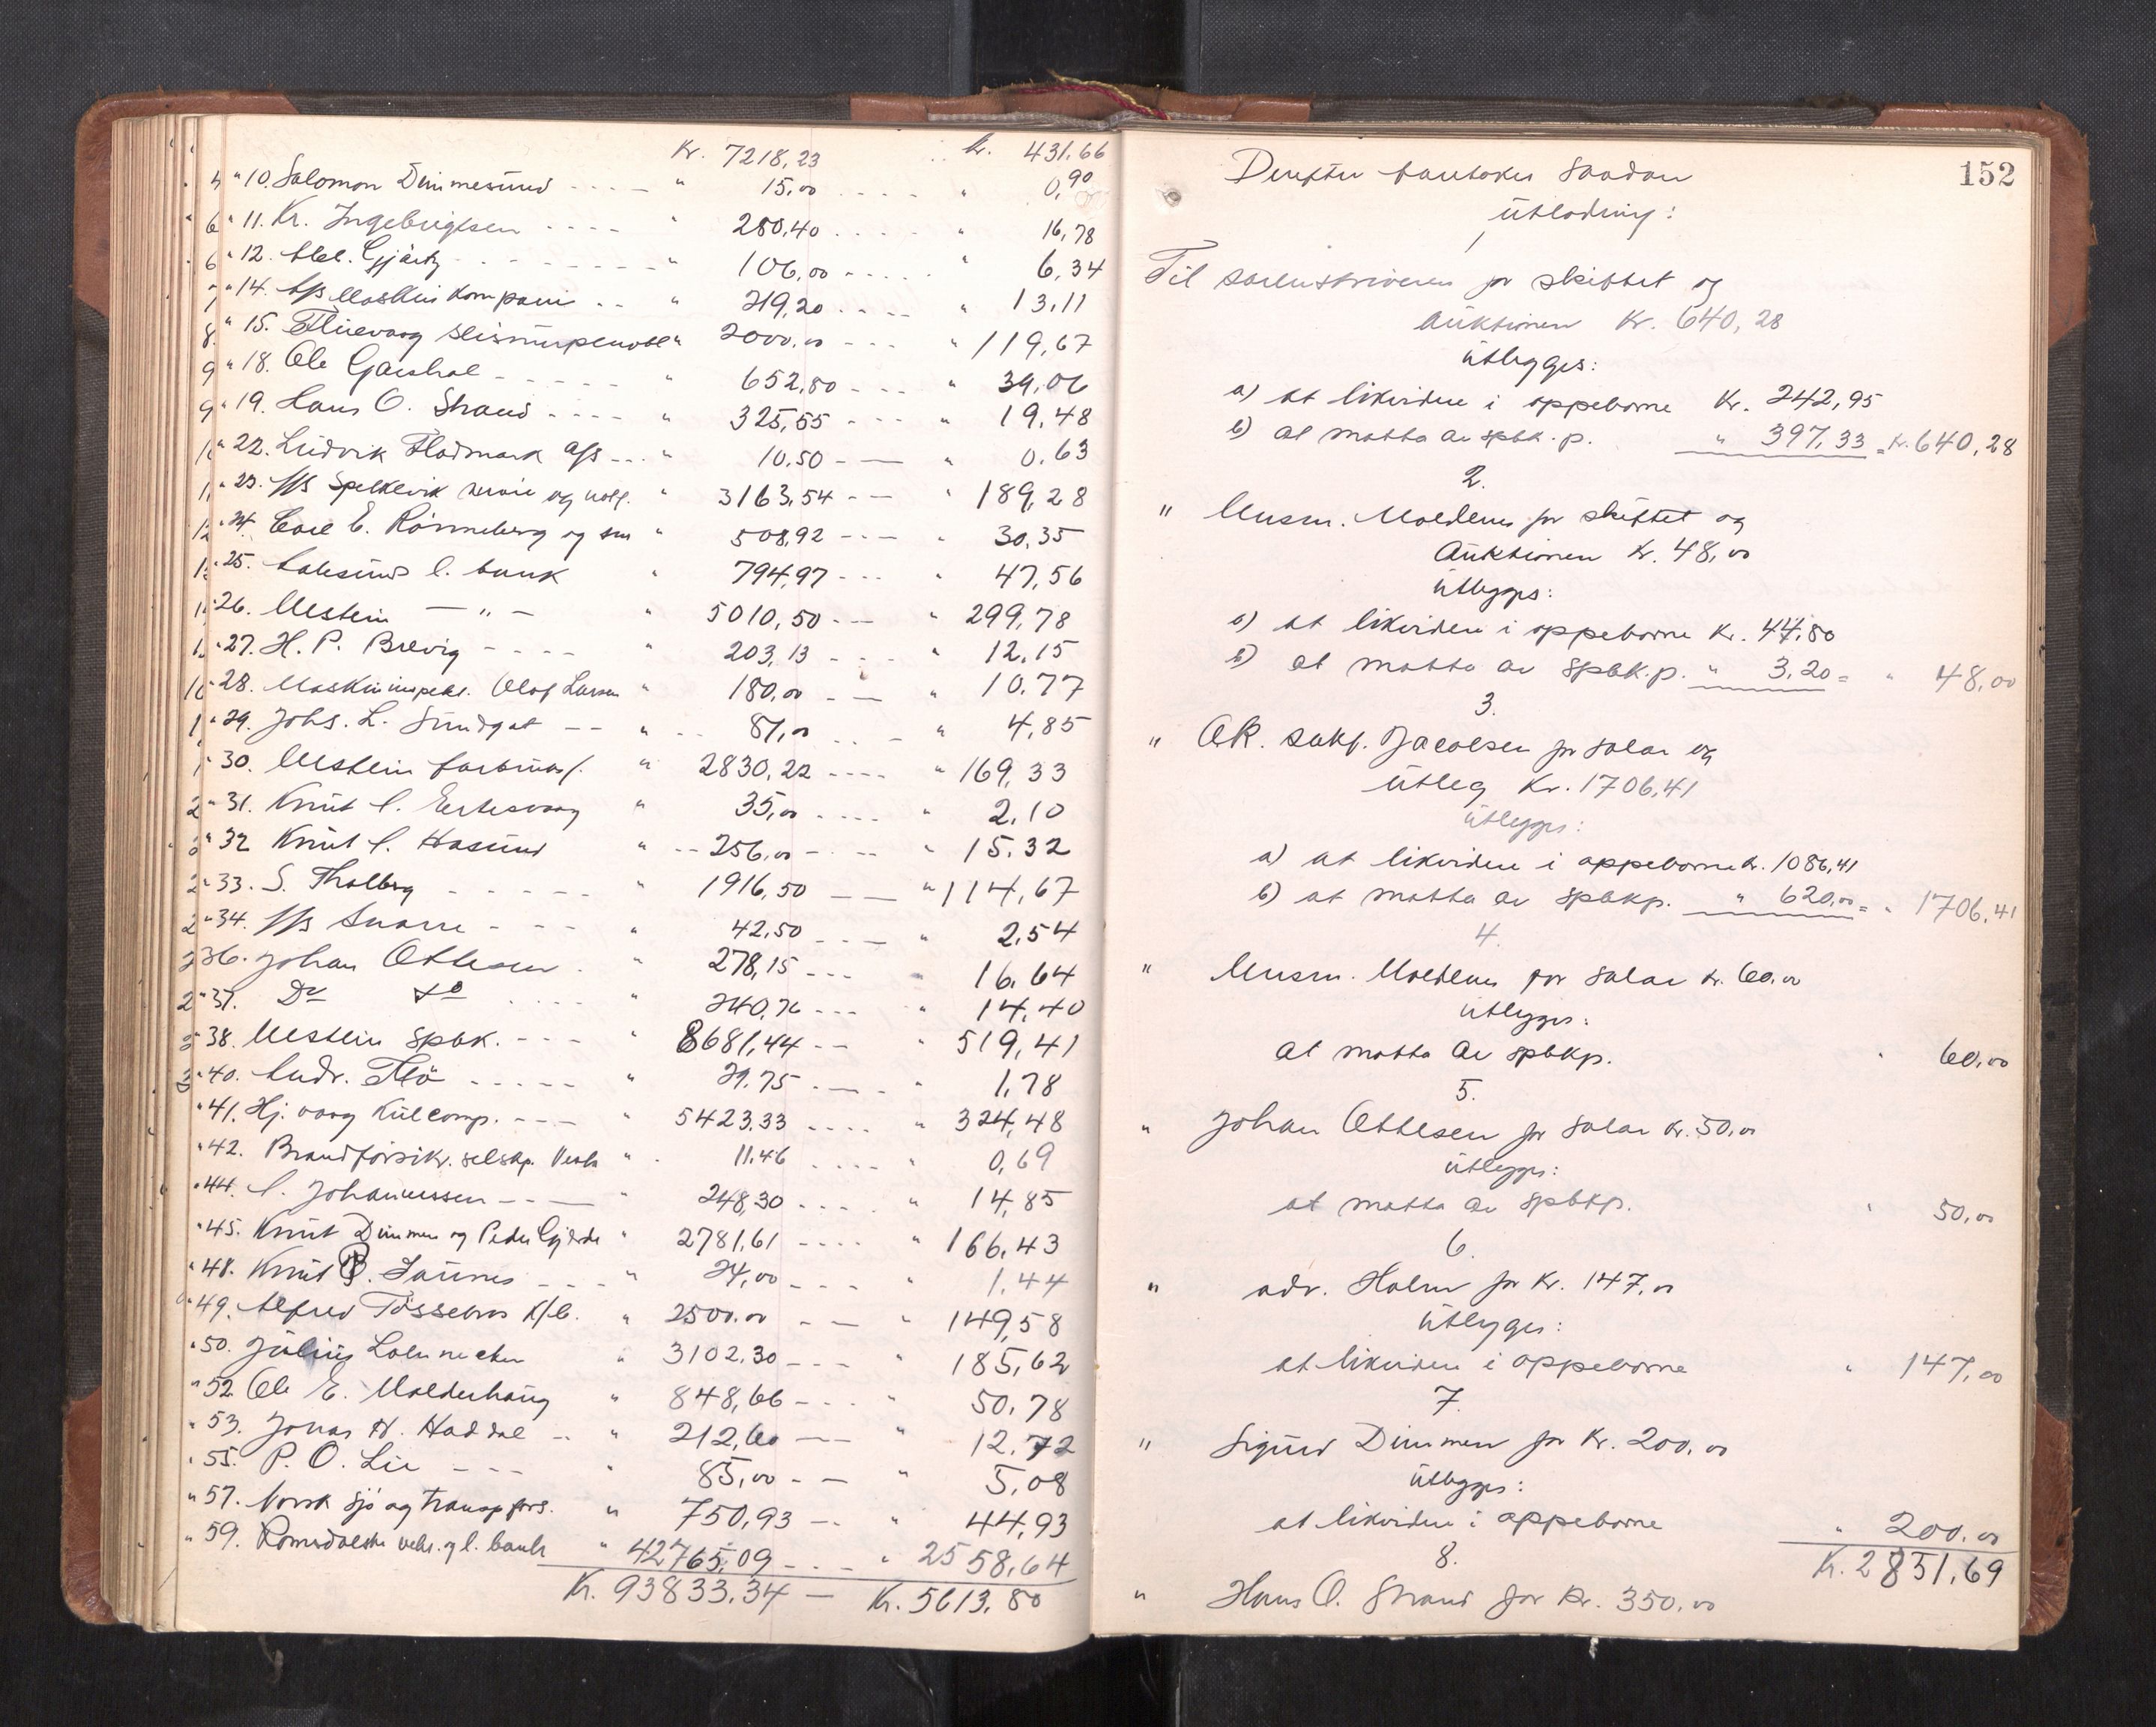 Kr. 7218,23 kr. 431,66
" 10. Salomon Dimmesund - - - - " 15,00 - - - - " 0,90
" 11. Kr. Ingebrigtsen - - - - " 280,40 - - - - " 16,78
" 12. - - - - " 106,00 - - - - " 6,34
" 14. A/s Maskin kompani - - " 219,20 - - - - " 13,11
" 15. " 2000,00 - - - " 119,67
" 18. Ole Garshol - - - - - " 652,80 - - - " 39,06
" 19. Hans O. Strand - - - - " 325,55 - - - " 19,48
" 22. Ludvik Flodmark a/s - - - " 10,50 - — " 0,63
" 23. A/s Spelkevik og " 3163,54 - — " 189,28
" 24. Carl E. Rönneberg og søn " 508,92 - - — " 30,35
" 25. Aalesunds l. bank " 794,97 - - - " 47,56
" 26. Ulstein — " — " 5010,50 - — " 299,78
" 27. H. P. Brevig - - - - " 203,13 - - - " 12,15
" 28. Maskininspekt. Olaf Larsen " 180,00 - — " 10,77
" 29. Johs. L. Sundgot — — " - - 81,00 - - — " 4,85
" 30. Ulstein " 2830,22 - - - - " 169,33
" 31. Knut " 35,00 - - - - " 2,10
" 32 Knut Hasund " - - 256,00 - - — " 15,32
" 33. S. Tholberg - - - - - " 1916,50 — — " 114,67
" 34. A/s - - - " 42,50 - - — " 2,54
" 36. Johan Ottesen . " 278,15 - - - " 16,64
" 37. Do do - - - - " 240,76 - - - " 14,40
" 38. Ulstein spbk. - - - " 8681,44 - — " 519,41
" 40. Andr. Flø - - - - - " 29,75 - — . " 1,78
" 41. Hj. vaag Kulcomp. - - - " 5423,33 - - - - " 324,48
" 42. Brandforsikr. selskp. Vesta " - 11,46 - - - - " 0,69
" 44. Johannessen — - — " 248,30 - - - - " 14,85
" 45. Knut Dimmen og Peder Gjerde " 2781,61 - - - - " 166,43
" 48. Knut P. - - - " 24,00 - - - " 1,44
" 49. Alfred Tössebro " 2500,00 - — " 149,58
" 50. Julius " 3102,30 - - - " 185,62
" 52 Ole E. Molderhaug " 848,66 - - - " 50,78
" 53. Jonas H. Haddal - - " 212,60 - — " 12,72
" 55. P. O. Lie - - - " 85,00 - — " 5,08
" 57. Norsk sjö og transp.fors. " 750,93 — . " 44,93
" 59. Romsdalske veks. og l. bank " 42765,09 - - - " 2558,64
Kr. 93833,34 — Kr. 5613,80
152
Derefter foretokes saadan
utlodning:
1
Til sorenskriveren for skiftet og
auktionen Kr. 640,28
utlegges:
a) at likvidere i oppebørne Kr. 242,95
b) at motta av spbk.p. " 397,33 = Kr. 640,28
2.
" for skiftet og
Auktionen Kr. 48,00
utlegges:
a) at likvidere i oppebørne Kr. 44,80
b) at motta av spbk.p. " 3,20 = " 48,00
3.
" O.R. sakf. Jacobsen for salar og
utleg Kr. 1706,41
utlegges:
a) at likvidere i oppebørne kr. 1086,41
b) at motta av spbkp. " 620,00 = " 1706,41
4.
" for salar kr. 60,00
utlegges:
at motta av spbkp. " 60,00
5.
" Johan Ottesen for salar Kr. 50,00
utlegges:
at motta av spbkp. " 50,00
6.
" adv. Holm for Kr. 147,00
utlegges:
at likvidere i oppebørne " 147,00
7.
" Sigurd Dimmen for Kr. 200,00
utlegges:
at likvidere i oppebørne " 200,00
Kr. 2851,69
8.
" Hans O. Strand for Kr. 350,00